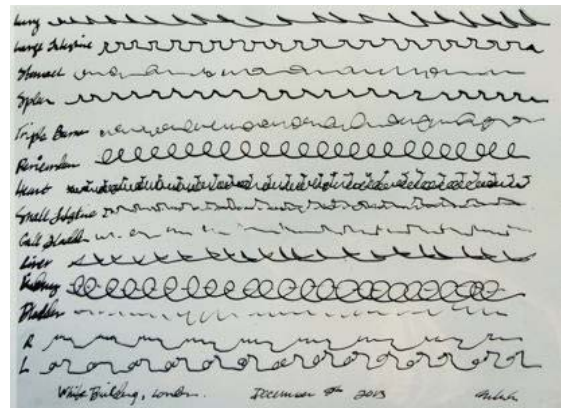 Lung
Large Intestine
Stomach
Spleen
Triple Burner
Heart
Small Intestine
Gall Bladder
Liver
Kidney
Bladder
R
L
White Building, London. December 2013